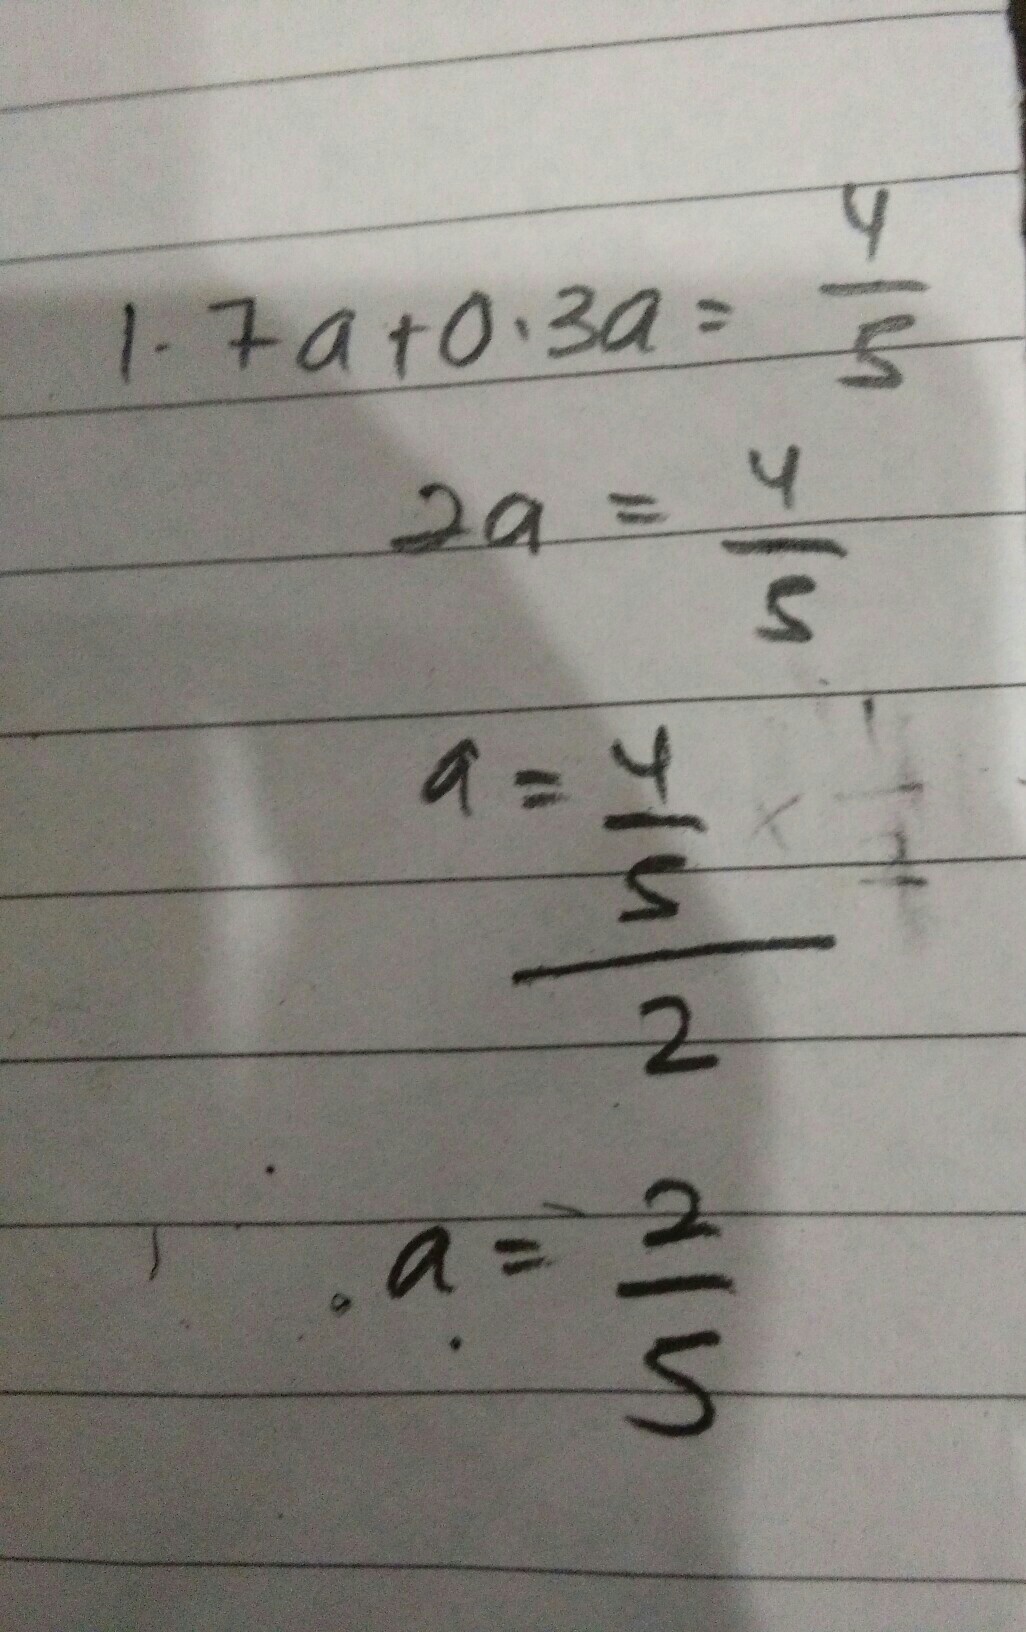 1.7a+0.3a = 4/5
2a = 4/5
a = 4/5 / 2
a = 2/5